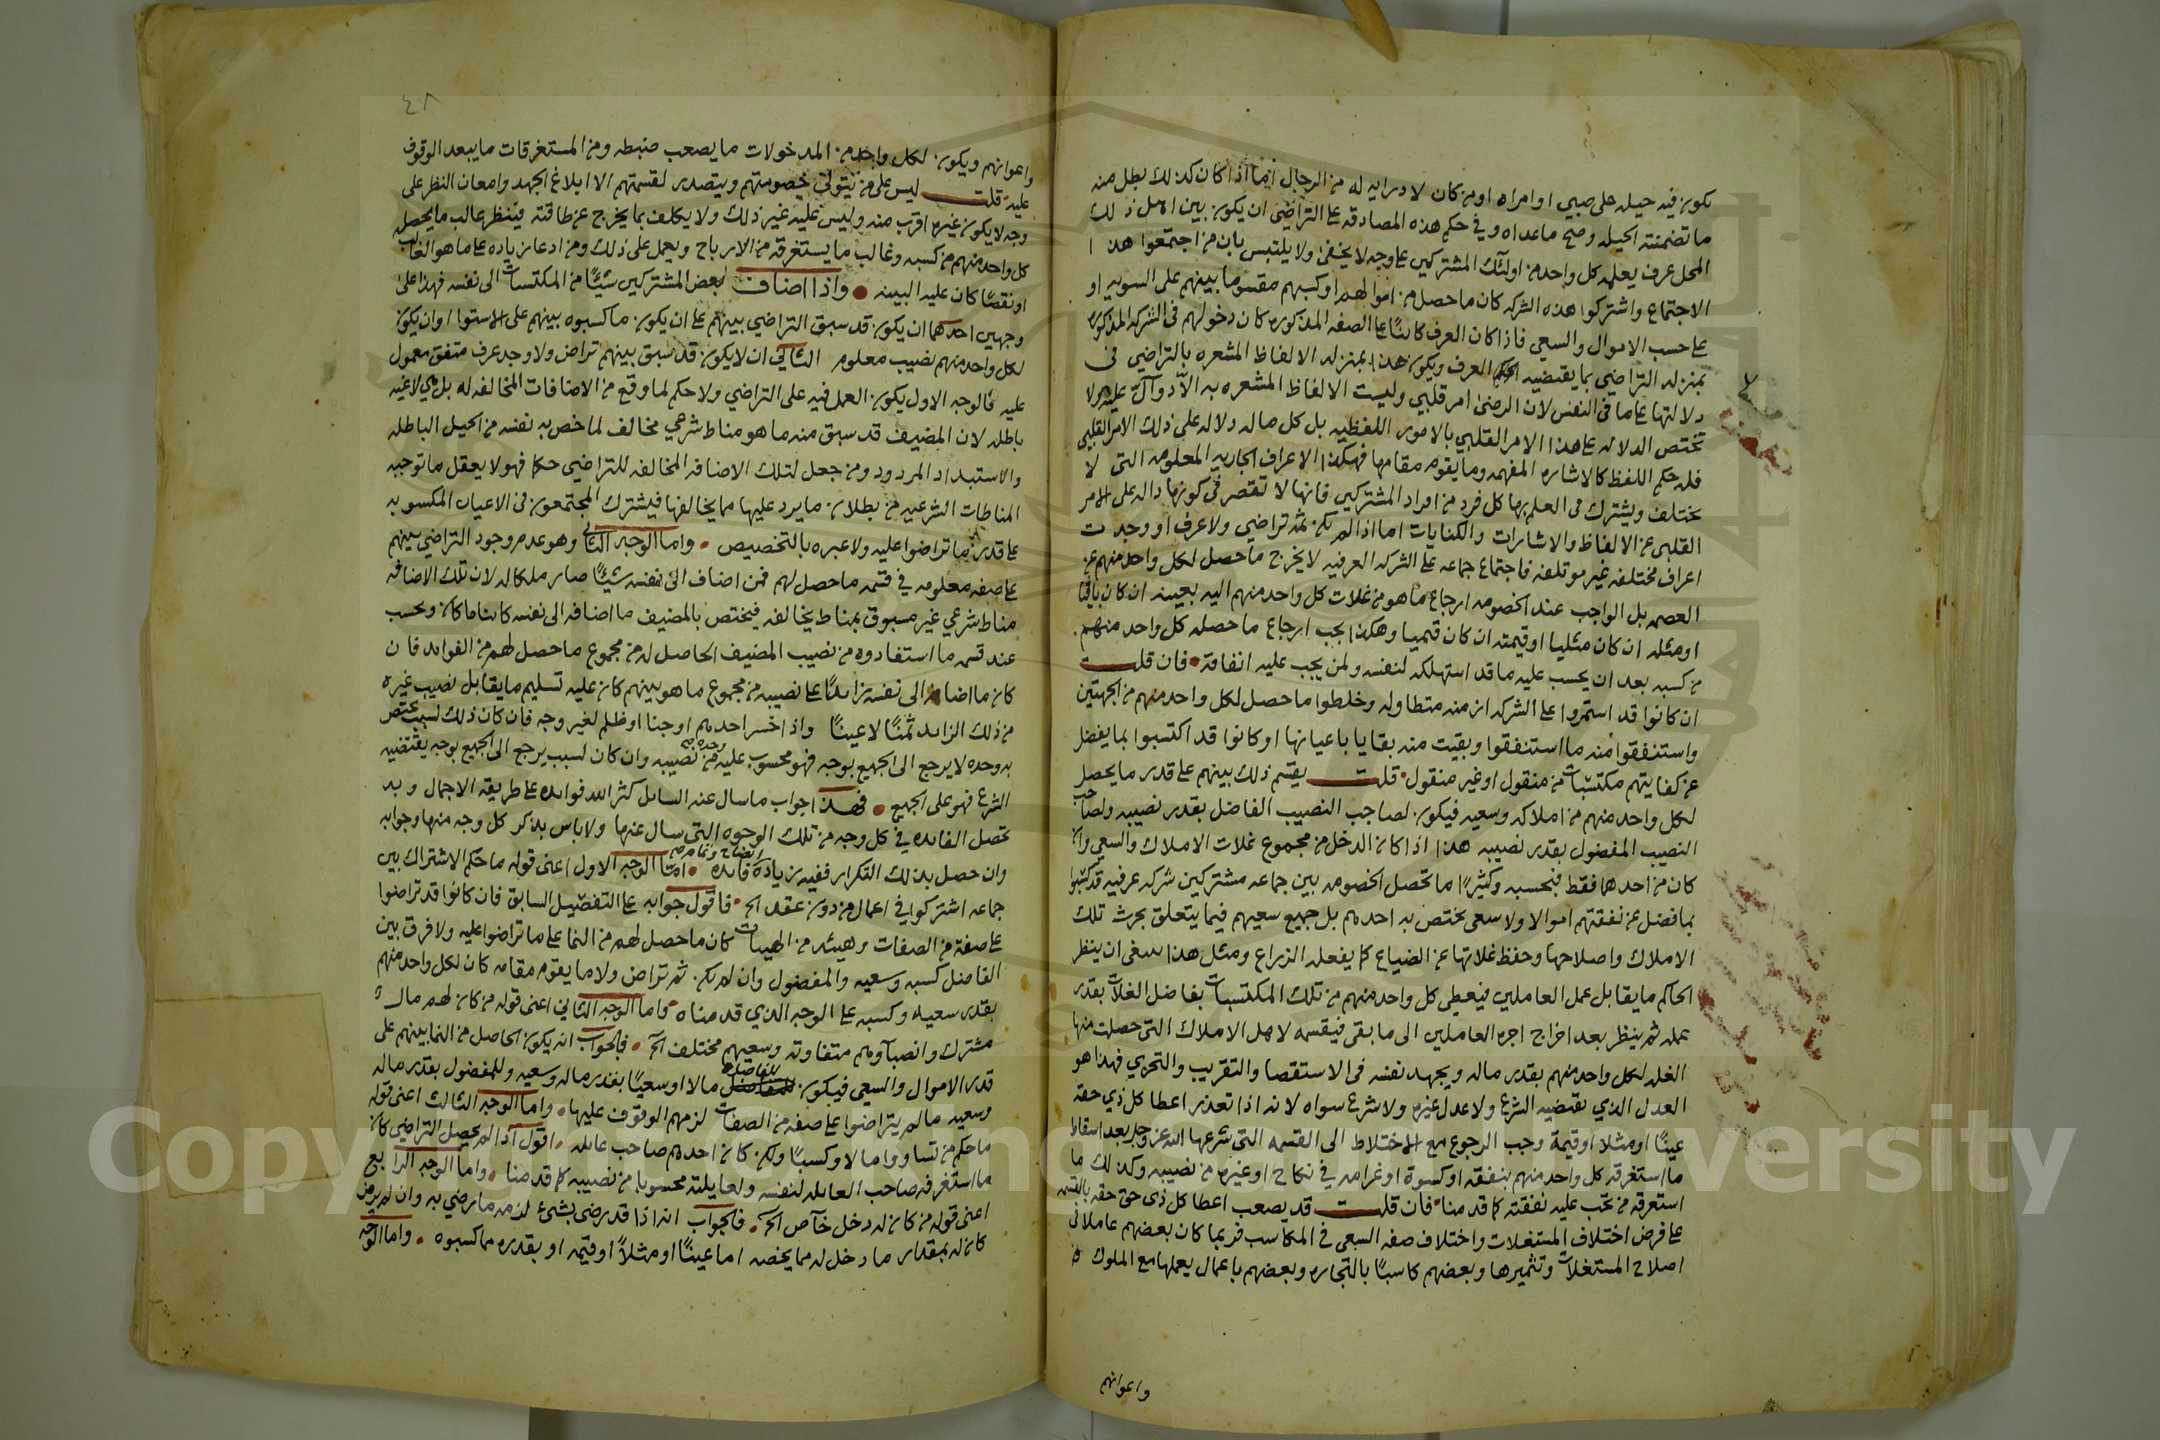 يكون فيه حيله على صبي او امراه او من كان لا درايه له من الرجال انما اذا كان كذلك بطل منه
ما تضمنته الحيله وصح ما عداه وفي حكم هذه المصادقه على التراضي ان يكون بين اهل ذلك
المحل عرف يعلمه كل واحد من اولئك المشتركين على وجه لا يخفى ولا يلتبس بان من اجتمعوا هذا ا
الاجتماع واشتركوا هذه الشركه كان ما حصل من اموالهم او كسبهم مقسوما بينهم على السويه او
على حسب الاموال والسعي فاذا كان العرف كائنًا على الصفه المذكوره كان دخولهم في الشركه المذكوره
بمنزله التراضي بما يقتضيه العرف ويكون هذا بمنزله الالفاظ المشعره بالتراضي في
دلالتها على ما في النفس لان الرضى امر قلبي وليست الالفاظ المشعره به الا دوآل عليه ولا
تختص الدلاله على هذا الامر القلبي بالامور اللفظيه بل كل ما له دلاله على ذلك الامر القلبي
فله حكم اللفظ كالاشاره المفهمه وما يقوم مقامها فهكذا الاعراف الجاريه المعلومه التي لا
تختلف ويشترك في العلم بها كل فرد من افراد المشتركين فانها لا تقصر في كونها داله على الامر
القلبي عن الالفاظ والاشارات والكنايات اما اذا لم يكن ثم تراضي ولا عرف او وجدت
اعراف مختلفه غير موتلفه فاجتماع جماعه على الشركه العرفيه لا يخرج ما حصل لكل واحد منهم عن
العصمه بل الواجب عند الخصومه ارجاع ما هو من غلات كل واحد منهم اليه بعينه ان كان باقيًا
او مثله ان كان مثليا او قيمته ان كان قيميا وهكذا يجب ارجاع ما حصله كل واحد منهم
من كسبه بعد ان يحسب عليه ما قد استهلكه لنفسه ولمن يجب عليه انفاقه فان قلت
ان كانوا قد استمروا على الشركه ازمنه متطاوله وخلطوا ما حصل لكل واحد منهم من الجهتين
واستنفقوا منه ما استنفقوا وبقيت منه بقايا باعيانها او كانوا قد اكتسبوا بما يفضل
عن كفايتهم مكتسبات من منقول او غير منقول قلت يقسم ذلك بينهم على قدر ما يحصل
لكل واحد منهم من املاكه وسعيه فيكون لصاحب النصيب الفاضل بقدر نصيبه ولصاحب
النصيب المفضول بقدر نصيبه هذا اذا كان الدخل من مجموع غلات الاملاك والسعي وان
كان من احدهما فقط فبحسبه وكثيرًا ما تحصل الخصومه بين جماعه مشتركين شركه عرفيه قد كسبوا
بما فضل عن نفقتهم اموالا ولا سعي يختص به احدهم بل جميع سعيهم فيما يتعلق بحرث تلك
الاملاك واصلاحها وحفظ غلاتها عن الضياع كما يفعله الزراع ومثل هذا ينبغي ان ينظر
الحاكم ما يقابل عمل العاملين فيعطي كل واحد منهم من تلك المكتسبات بفاضل الغلات بقدر
عمله ثم ينظر بعد اخراج اجره العاملين الى ما بقي فيقسمه لاهل الاملاك التي حصلت منها
الغله لكل واحد منهم بقدر ماله ويجهد نفسه في الاستقصا والتقريب والتحري فهذا هو
العدل الذي يقتضيه الشرع ولا عدل غيره ولا شرع سواه لانه اذا تعذر اعطا كل ذي حقه
عينًا او مثلا او قيمة وجب الرجوع مع الاختلاط الى القسمه التي شرعها الله عز وجل بعد اسقاط
ما استغرقه كل واحد منهم بنفقه او كسوة او غرامه في نكاح او غيره من نصيبه وكذلك ما
استغرقه من تجب عليه نفقته كما قدمنا فان قلت قد يصعب اعطا كل ذي حق حقه بالقسمه
على فرض اختلاف المستغلات واختلاف صفه السعي في المكاسب فربما كان بعضهم عاملا في
اصلاح المستغلات وتثميرها وبعضهم كاسبًا بالتجاره وبعضهم باعمال يعملها مع الملوك
واعوانهم
٤٨
واعوانهم ويكون لكل واحد من المدخولات ما يصعب ضبطه ومن المستغرقات ما يبعد الوقوف
عليه قلت ليس على من يتولى خصومتهم ويتصدر لقسمتهم الا ابلاغ الجهد وامعان النظر على
وجه لا يكون غيره اقرب منه وليس عليه غير ذلك ولا يكلف بما يخرج عن طاقته فينظر غالب ما يحصل
كل واحد منهم من كسبه وغالب ما يستغرقه من الارباح ويعمل على ذلك ومن ادعا زياده على ما هو الغالب
او نقصًا كان عليه البينه واذا اضاف بعض المشتركين شيئًا من المكتسبات الى نفسه فهذا على
وجهين احدهما ان يكون قد سبق التراضي بينهم على ان يكون ما كسبوه بينهم على الاستوا او ان يكون
لكل واحد منهم نصيب معلوم الثاني ان لا يكون قد سبق بينهم تراض ولا وجد عرف متفق معمول
عليه فالوجه الاول يكون العمل فيه على التراضي ولا حكم لما وقع من الاضافات المخالفه له بل هي لاغيه
باطله لان المضيف قد سبق منه ما هو مناط شرعي مخالف لما خص به نفسه من الحيل الباطله
والاستبداد المردود ومن جعل لتلك الاضافه المخالفه للتراضي حكما فهو لا يعقل ما توجبه
المناطات الشرعيه من بطلان ما يرد عليها مما يخالفها فيشترك المجتمعون في الاعيان المكسوبه
على قدر ما تراضوا عليه ولا عبره بالتخصيص واما الوجه الثاني وهو عدم وجود التراضي بينهم
على صفه معلومه في قسمه ما حصل لهم فمن اضاف الى نفسه شيئًا صار ملكا له لان تلك الاضافه
مناط شرعي غير مسبوق بمناط يخالفه فيختص بالمضيف ما اضافه الى نفسه كائنا ما كان ويحسب
عند قسمه ما استفادوه من نصيب المضيف الحاصل له من مجموع ما حصل لهم من الفوائد فان
كان ما اضافه الى نفسه زائدًا على نصيبه من مجموع ما هو بينهم كان عليه تسليم ما يقابل نصيب غيره
من ذلك الزائد ثمنًا لا عينًا واذا خسر احدهم او جنا او ظلم لغير وجه فان كان ذلك لسبب يختص
به وحده لا يرجع الى الجميع بوجه فهو محسوب عليه من نصيبه وحده وان كان لسبب يرجع الى الجميع بوجه يقتضيه
الشرع فهو على الجميع فهذا جواب ما سال عنه السائل كثر الله فوائده على طريقة الاجمال وبه
تحصل الفائده في كل وجه من تلك الوجوه التي سال عنها ولا باس بذكر كل وجه منها وجوابه
وان حصل بذلك التكرار ففيه زيادة فائده اما الوجه الاول اعني قوله ما حكم الاشتراك بين
جماعه اشتركوا في اعمال من دون عقد الخ فاقول جوابه على التفصيل السابق فان كانوا قد تراضوا
على صفة من الصفات وهيئه من الهيئات كان ما حصل لهم من النما على ما تراضوا عليه ولا فرق بين
الفاضل كسبه وسعيه والمفضول وان لم يكن ثم تراض ولا ما يقوم مقامه كان لكل واحد منهم
بقدر سعيه وكسبه على الوجه الذي قدمناه واما الوجه الثاني اعني قوله من كان لهم مال
مشترك وانصباوهم متفاوته وسعيهم مختلف الخ فالجواب انه يكون الحاصل من النما بينهم على
قدر الاموال والسعي فيكون للفاضل مالا او سعيًا بقدر ماله وسعيه وللمفضول بقدر ماله
وسعيه ما لم يتراضوا على صفه من الصفات لزمهم الوقوف عليها واما الوجه الثالث اعني قوله
ما حكم من تساووا مالا وكسبًا ولكن كان احدهم صاحب عائله اقول اذا لم يحصل التراضي كان
ما استغرقه صاحب العائله لنفسه ولعايلته محسوبا من نصيبه كما قدمنا واما الوجه الرابع
اعني قوله من كان له دخل خآص الخ فالجواب انه اذا قد رضي بشئ لزمه ما رضي به وان لم يرض
كان له بمقدار ما دخل له مما يخصه اما عينًا او مثلاً او قيمه او بقدره مما كسبوه واما الوجه
Copyright © King Saud University